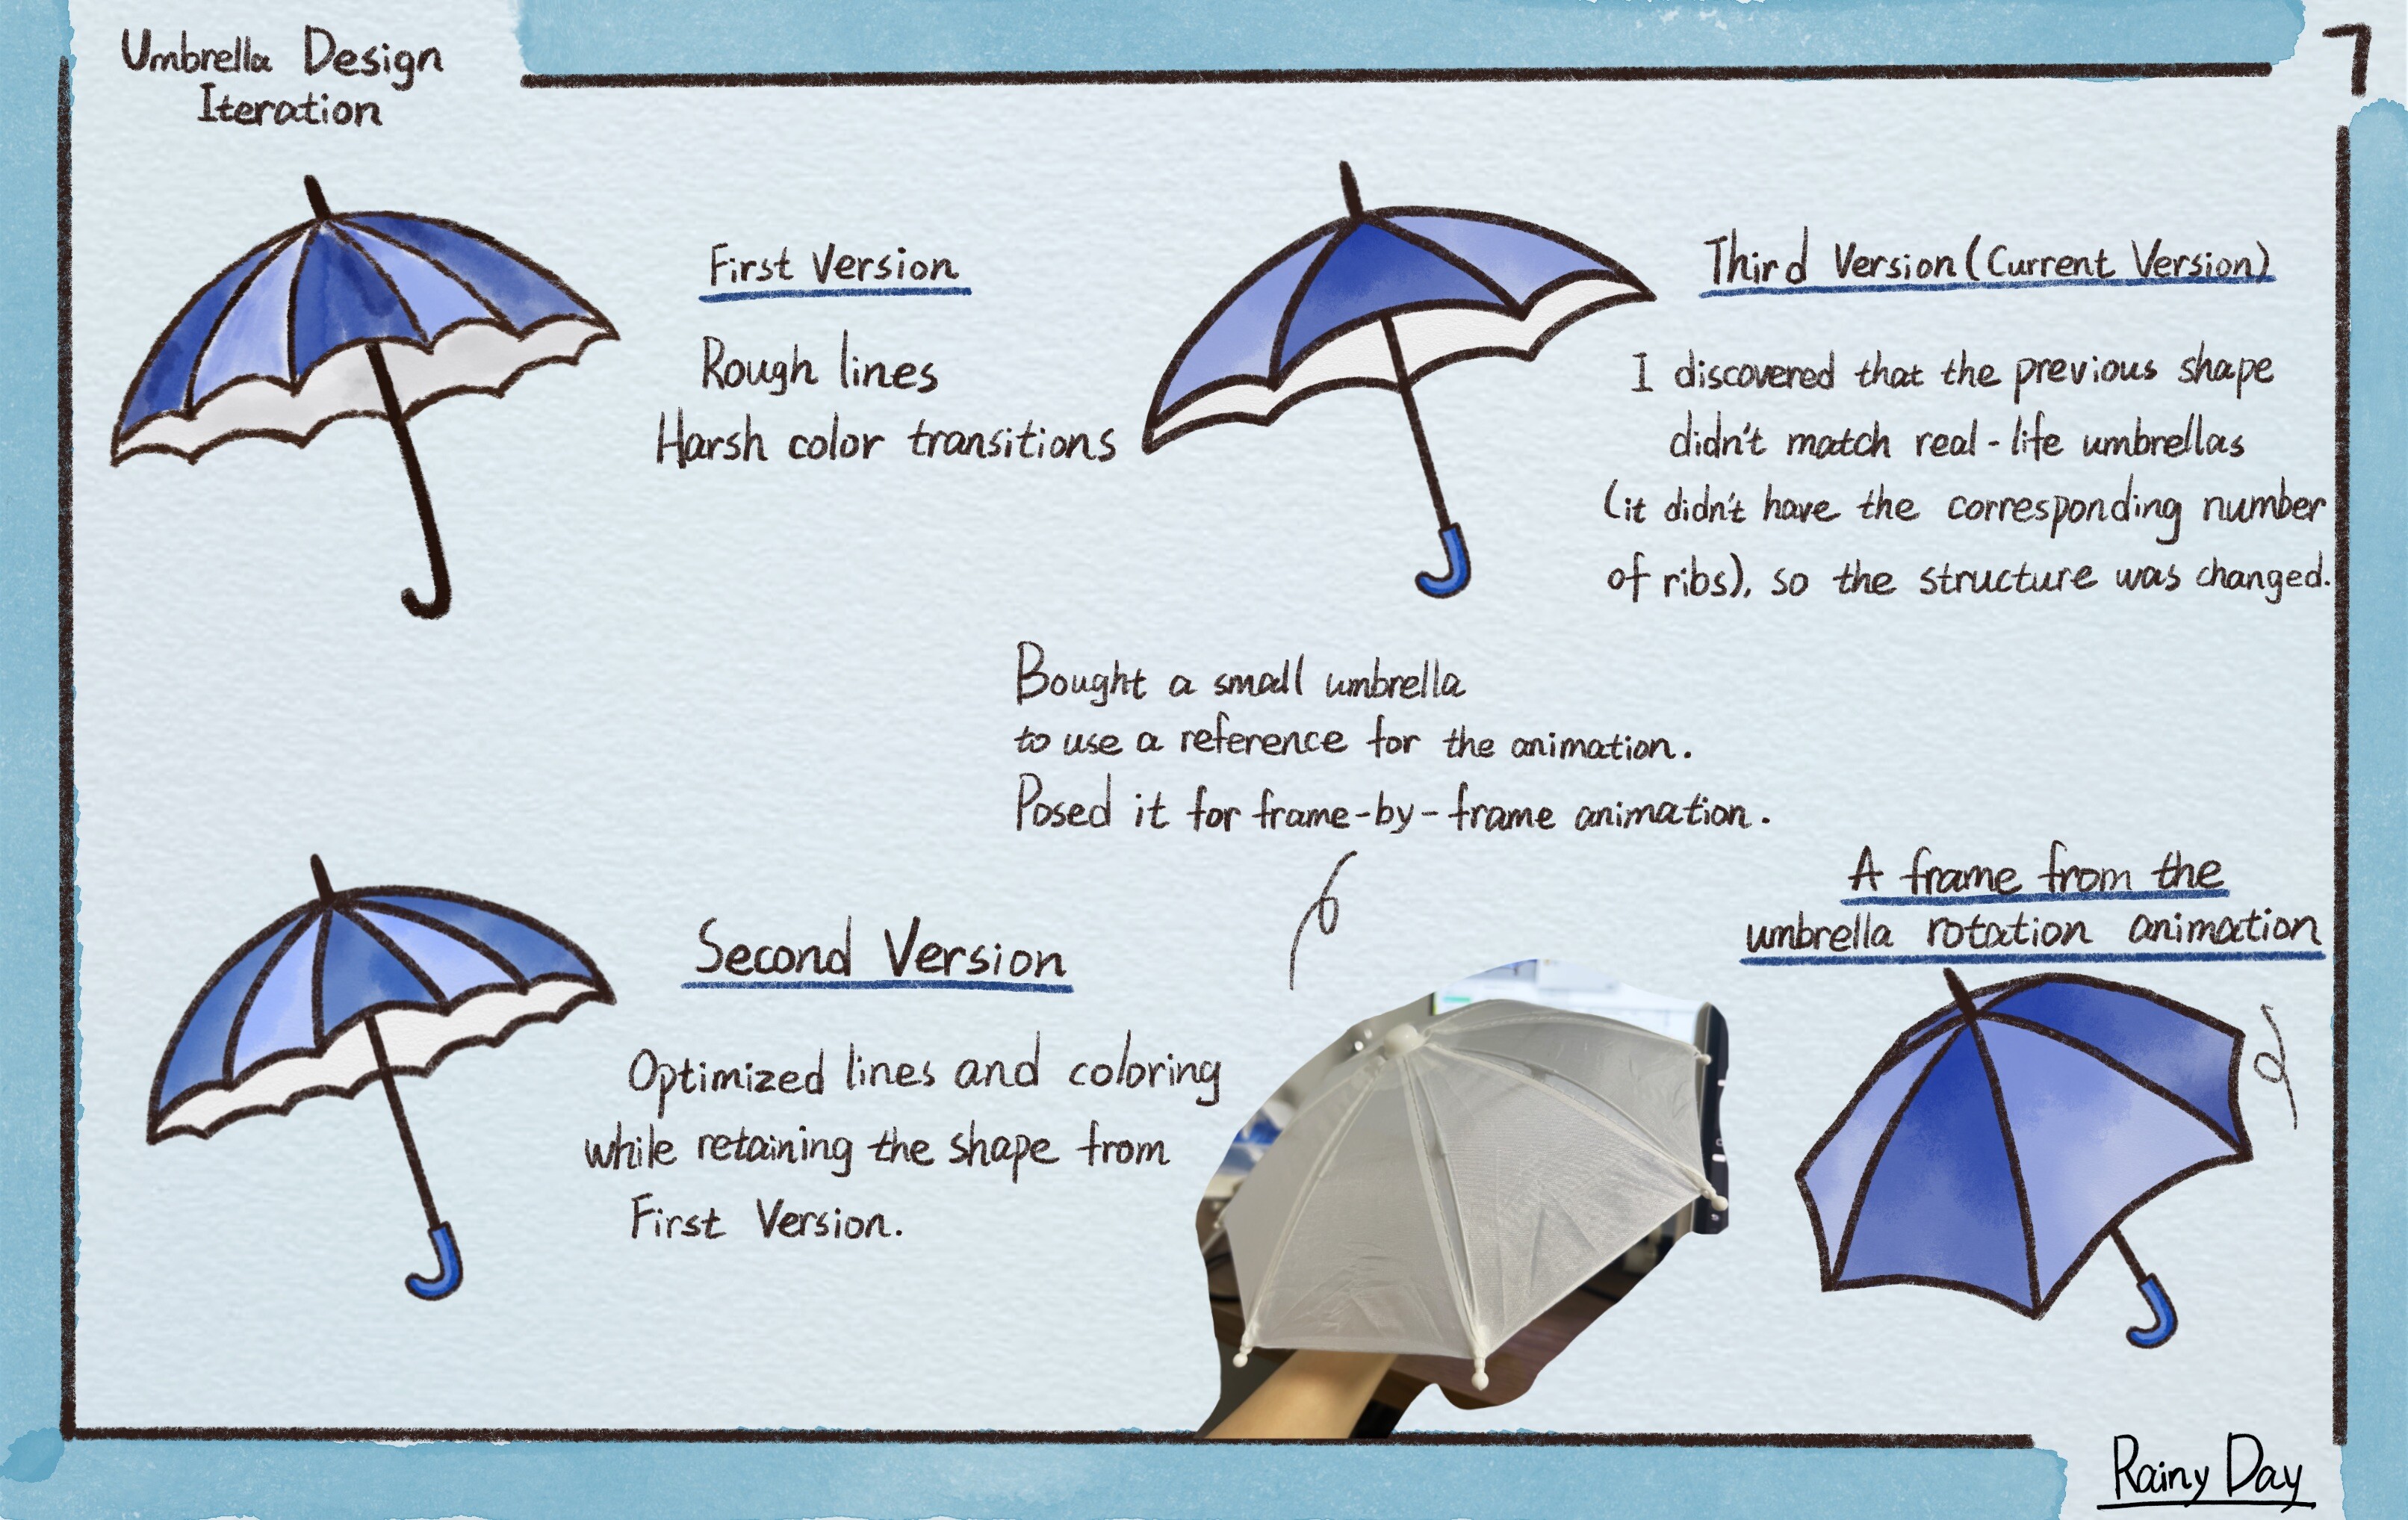 Umbrella Design
Iteration
7
First Version
Rough lines
Harsh color transitions
Third Version (Current Version)
I discovered that the previous shape
didn't match real-life umbrellas
(it didn't have the corresponding number
of ribs), so the structure was changed.
Bought a small umbrella
to use a reference for the animation.
Posed it for frame-by-frame animation.
Second Version
Optimized lines and coloring
while retaining the shape from
First Version.
A frame from the
umbrella rotation animation
Rainy Day